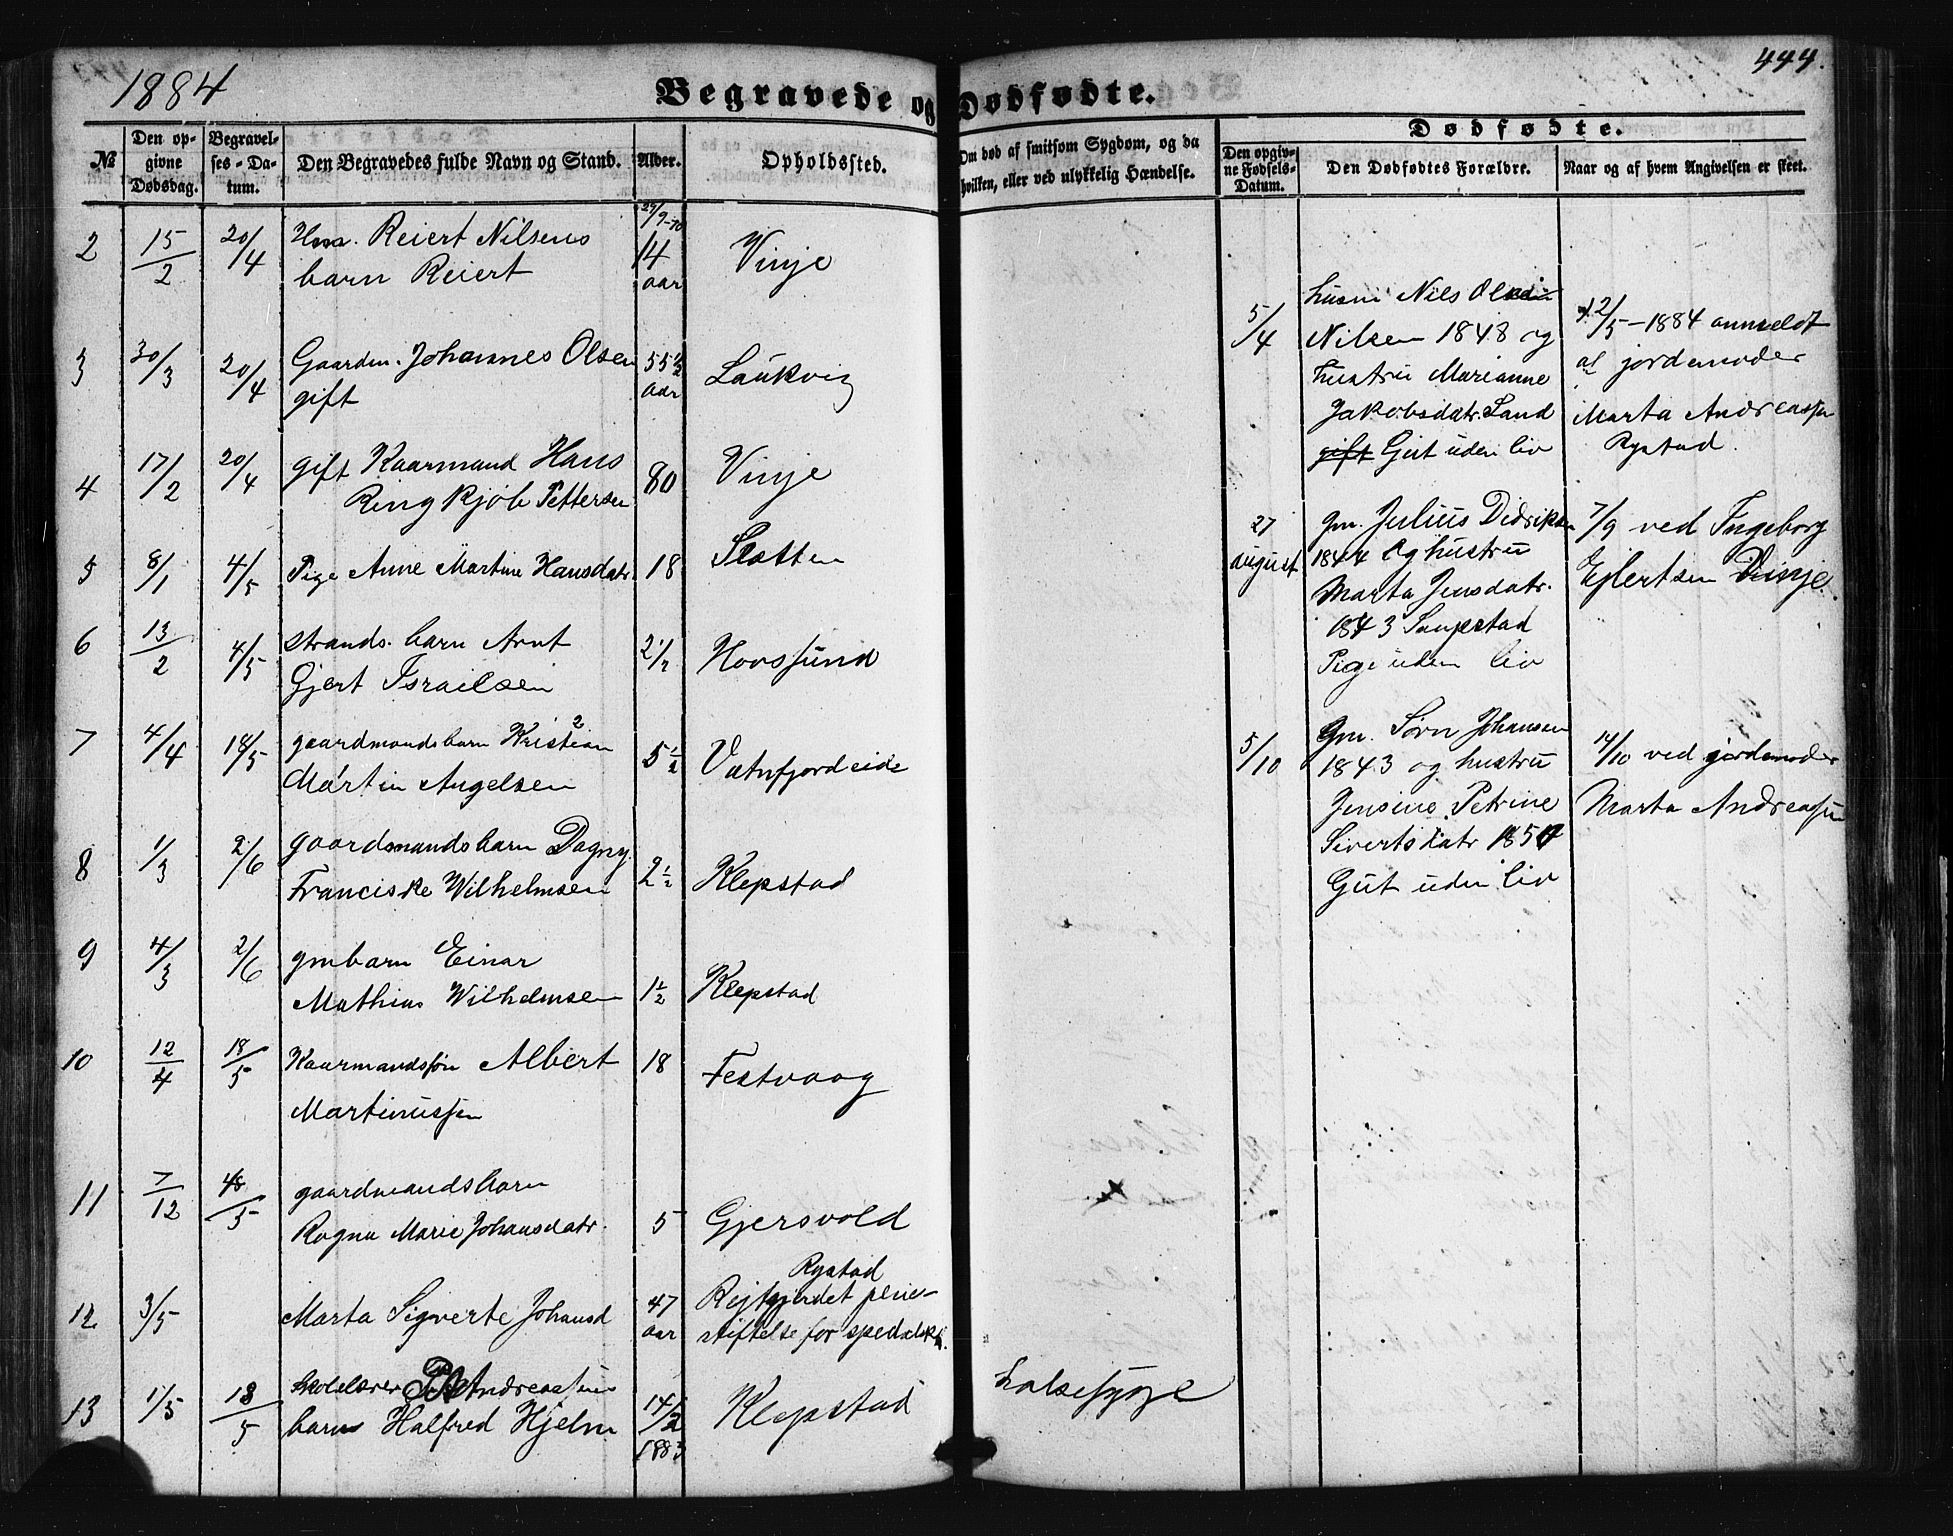 1884
444.
Begravede og Dødfødte.
№
Den op-
givne
Dødsdag.
Begravel-
ses-Da-
tum.
Den Begravedes fulde Navn og Stand.
Alder.
Opholdssted.
Om død af smitsom Sygdom, og da
hvilken, eller ved ulykkelig Hændelse.
Dødfødte.
Den opgiv-
ne Fødsels-
Datum.
Den Dødfødtes Forældre.
Naar og af hvem Angivelsen er skeet.
2 15/2 20/4 Hm. Reiert Nilsens
barn Reiert
14
aar
Vinje
3 30/3 20/4 Gaardm. Johannes Olsen
gift
55 1/2
aar
Laukvig
4 17/2 20/4 gift Kaarmand Hans
Ringkjøb Pettersen
80 Vinje
5 8/1 4/5 Pige Anne Martine Hansdatr. 18 Slotten
6 13/2 4/5 strands. barn Arnt
Gjert Israelsen
2 1/2 Hovsund
7 4/4 18/5 gaardmandsbarn Kristian
Martin Angelsen
5 1/2 Vatnfjordeide
8 1/3 2/6 gaardsmandsbarn Dagny
Franciske Wilhelmsen
2 1/2 Klepstad
9 4/3 2/6 gmbarn Einar
Mathias Wilhelmsen
1 1/2 Klepstad
10 12/4 18/5 Kaarmandssøn Albert
Martinussen
18 Festvaag
11 7/12 18/5 gaardmandsbarn
Ragna Marie Johansdatr.
5 Gjersvold
12 3/5 Marta Sigverte Johansd
47
aar
Rystad
Rejtgjerdet pleie-
stiftelse for spedalske.
13 1/5 18/5 skolelærer Andreassens
barn Halfred Hjelm
14/2
1883
Klepstad
halsesyge
5/4
husm Nils
Nilsen 1848 og
hustru Marianne
Jakobsdatr. Sand
gift Gut uden liv
12/5 - 1884 anmeldt
af jordemoder
Marta Andreassen
Rystad.
27
august
Gm. Julius Didriksen
1844 og hustru
Marta Jensdatr.
1843 Saupstad
Pige uden liv
7/9 ved Ingeborg
Ejlertsen Vinje.
5/10
Gm. Sørn Johansen
1843 og hustru
Jensine Petrine
Sivertsdatr
Gut uden liv
14/10 ved jordemoder
Marta Andreassen